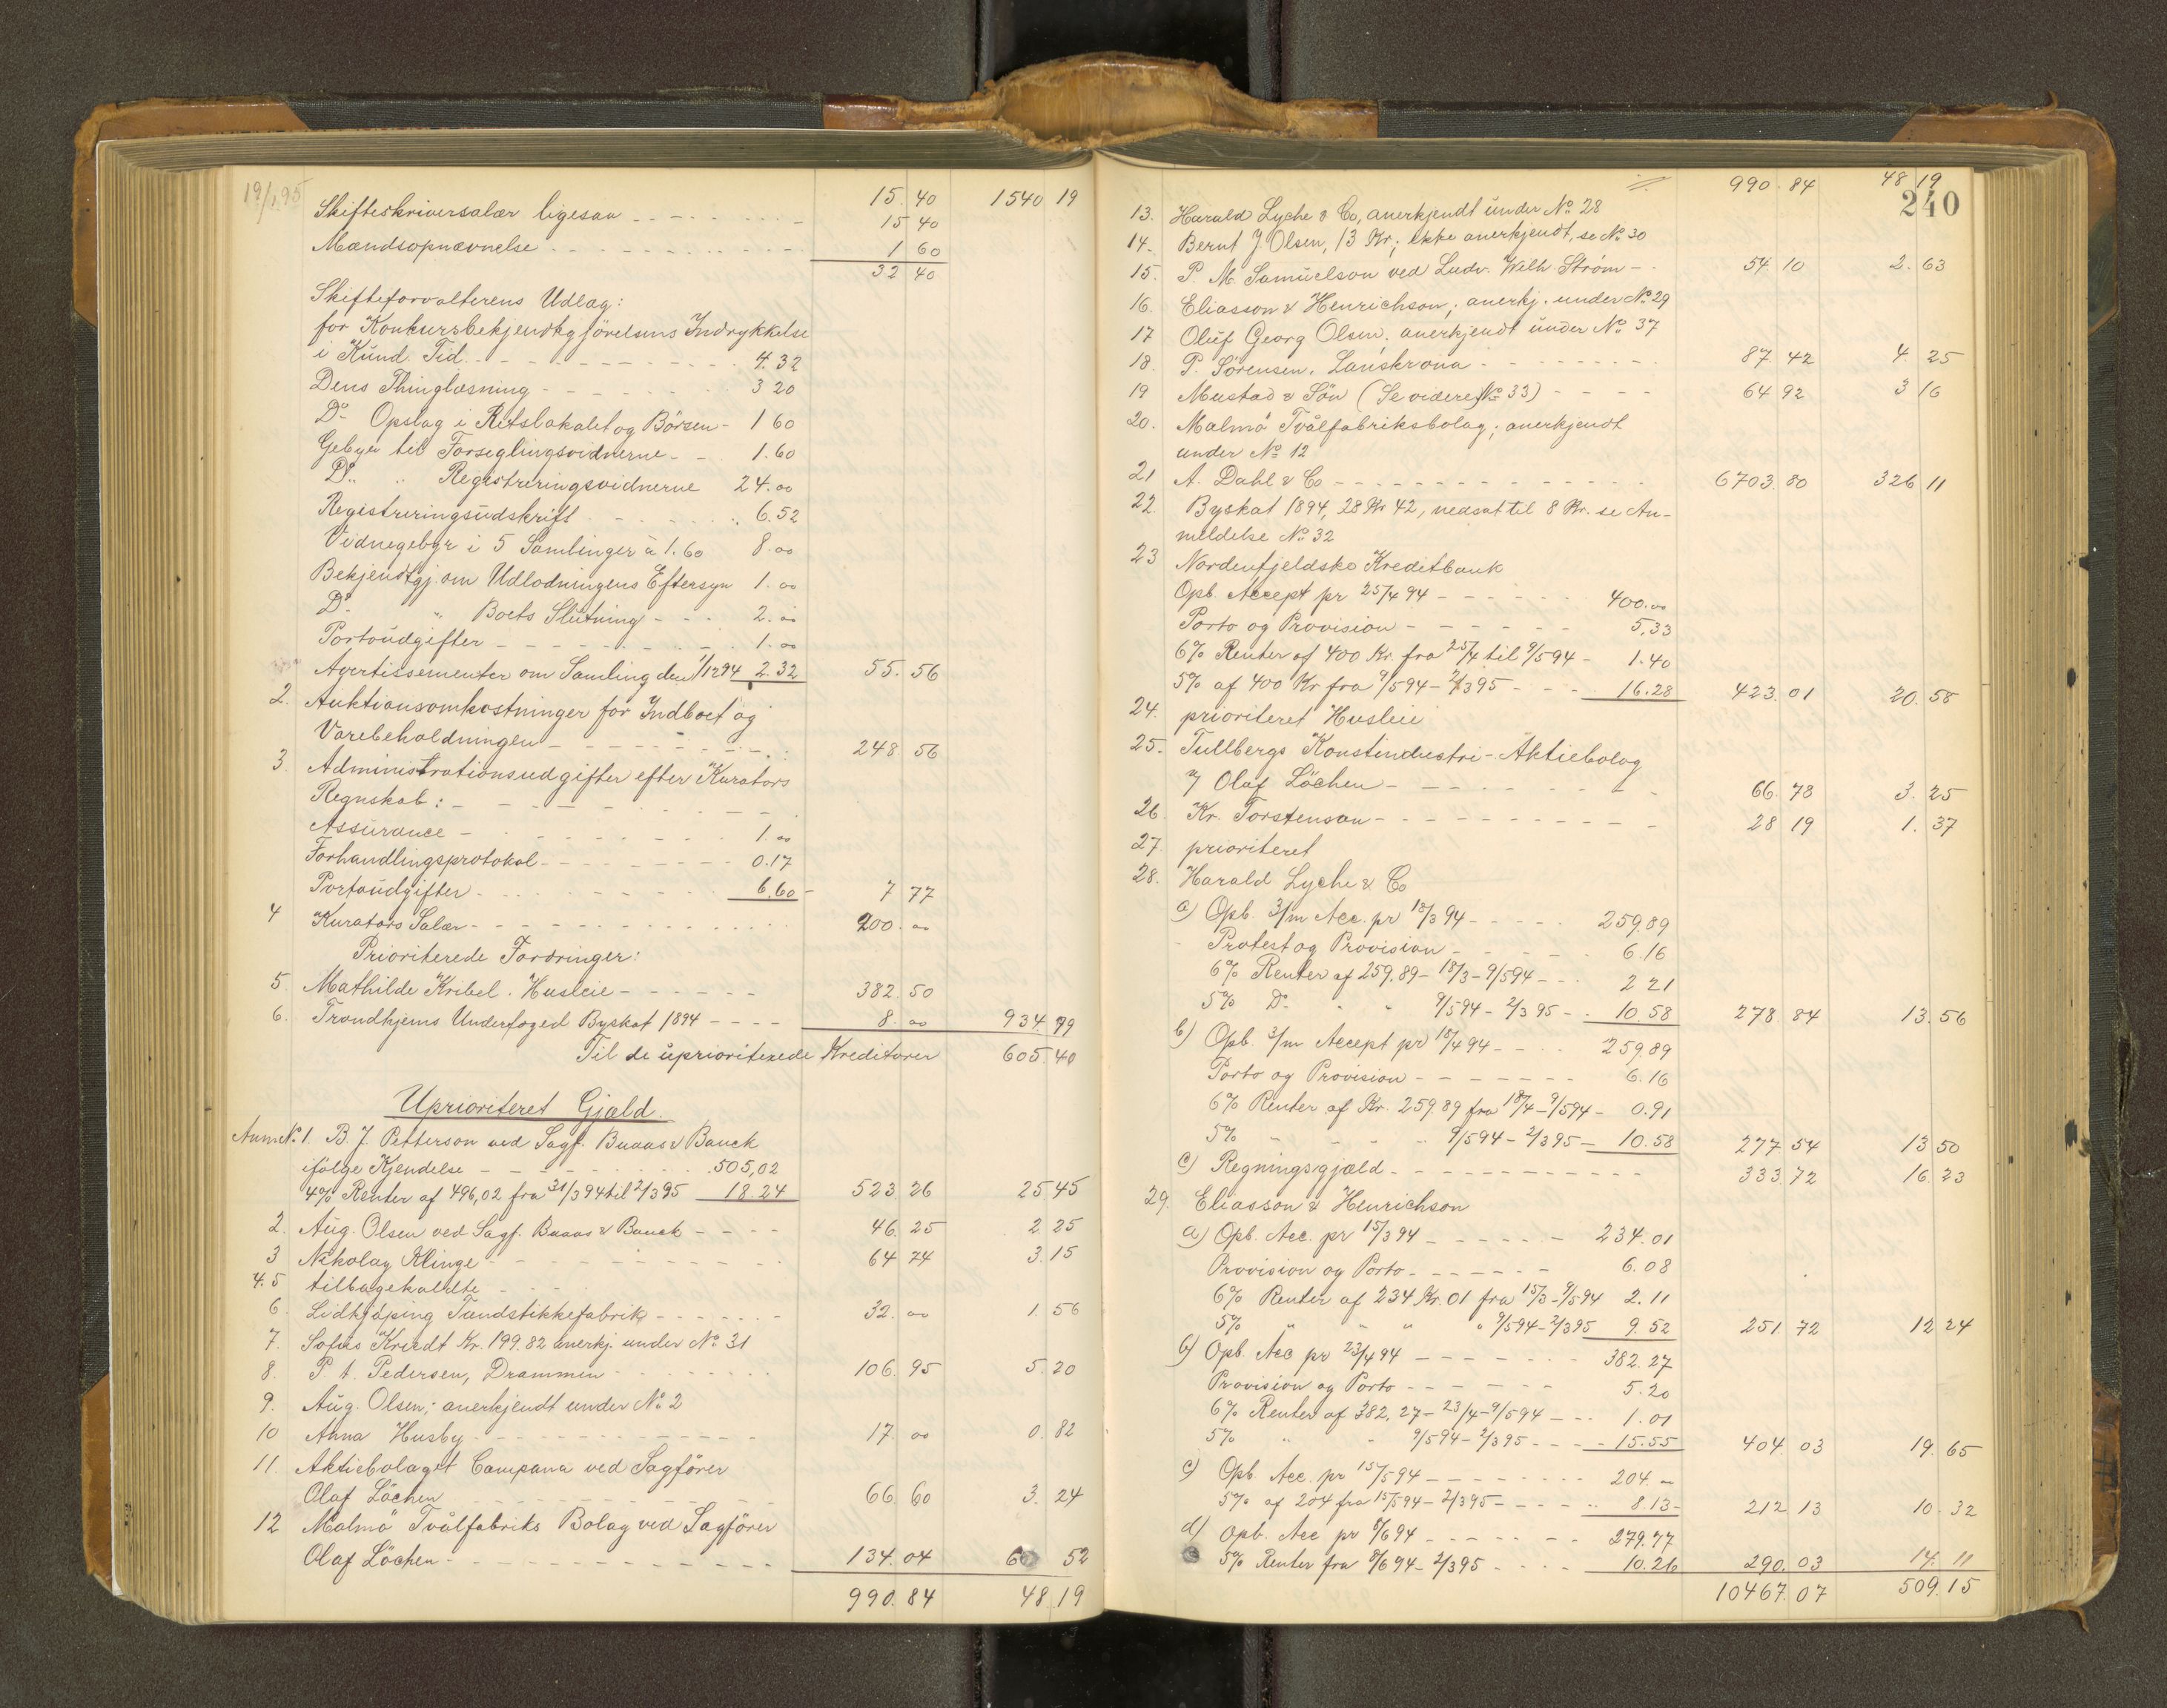 19/1 95
15. 40 1540 19
Skifteskriversalær ligesaa 15 40
Mændsopnævnelse 1 60
32 40
Skifteforvalterens Udlæg:
for Konkursbekjendtgjörelsens Indrykkelse
i Kund. Tid. 4.32
Dens Thinglæsning 3 20
Do Opslag i Retslokalet og Börsen 1 60
Gebyr til Forseglingsvidnerne 1.60
Do " Registreringsvidnerne 24.00
Registreringsudskrift 6.52
Vidnegebyr i 5 Samlinger à 1.60 8.00
Bekjendtgj. om Udlodningens Eftersyn 1.00
Do " Boets Slutning 2.00
Portoudgifter 1.00
Avertissementer om Samling den 1/12 94 2.32 55. 56
2. Auktionsomkostninger for Indboet og
Varebeholdningen 248 56
3. Administrationsudgifter efter Kurators
Regnskab:
Assurance 1.00
Forhandlingsprotokol 0.17
Portoudgifter 6.60 7 77
4 Kurators Salær 200.00
Prioriterede Fordringer:
5. Mathilde Kribel. Husleie 382.50
6. Trondhjems Underfoged Byskat 1894 8.00 934.79
Til de uprioriterede Kreditorer 605.40
Uprioriteret Gjæld.
Anm. No 1. B. J. Petterson ved Sagf. Buaas & Bauck
ifölge Kjendelse 505,02
4% Renter af 496,02 fra 31/3 94 til 2/3 95 18.24 523 26 25.45
2. Aug. Olsen ved Sagf. Buaas & Bauck 46.25 2.25
3 Nikolay Klinge 64 74 3.15
4.5 tilbagekaldte
6. Lidköping Tændstikkefabrik 32.00 1.56
7. Sofus Kriedt Kr. 199.82 anerkj. under No 31
8. P. A. Pedersen, Drammen 106.95 5.20
9. Aug. Olsen; anerkjendt under No 2
10 Anna Husby 17.00 0.82
11. Aktiebolaget Campana ved Sagförer
Olaf Löchen 66.60 3.24
12 Malmö Tvålfabriks Bolag ved Sagförer
Olaf Löchen 134.04 6 52
990.84 48.19
990.84 48 19
240
13. Harald Lyche & Co, anerkjendt under No 28
14. Bernt J. Olsen, 13 Kr; ikke anerkjendt, se No 30
15. P. M. Samuelson ved Ludv. Wilh. Ström 54 10 2.63
16. Eliasson & Henrichson; anerkj. under No 29
17 Oluf Georg Olsen; anerkjendt under No 37
18. P. Sörensen, Lanskrona 87.42 4.25
19 Mustad & Sön (Se videre No 33) 64 92 3 16
20. Malmö Tvålfabriksbolag; anerkjendt
under No 12
21 A. Dahl & Co 6703.80 326 11
22. Byskat 1894, 28 Kr 42, nedsat til 8 Kr. se An-
meldelse No 32
23 Nordenfjeldske Kreditbank
Opb. Accept pr 25/4 94 400.00
Porto og Provision 5,33
6% Renter af 400 Kr. fra 25/4 til 9/5 94 1.40
5% af 400 Kr fra 9/5 94 - 2/3 95 16.28 423.01 20.58
24. prioriteret Husleie
25. Tullbergs Konstindustri-Aktiebolag
v/ Olaf Löchen 66.78 3.25
26. Kr. Torstenson 28 19 1.37
27. prioriteret
28. Harald Lyche & Co
a) Opb. 3/m Acc. pr 18/3 94 259.89
Protest og Provision 6.16
6% Renter af 259.89 - 18/3 - 9/5 94 2 21
5% Do " " 9/5 94 - 2/3 95 10.58 278.84 13.56
b) Opb. 3/m Accept pr 18/4 94 259.89
Porto og Provision 6.16
6% Renter af Kr. 259.89 fra 18/4 - 9/5 94 0.91
5% " " " " 9/5 94 - 2/3 95 10.58 277.54 13 50
c) Regningsgjæld 333.72 16.23
29. Eliasson & Henrichson
a) Opb. Acc. pr 15/3 94 234.01
Provision og Porto 6.08
6% Renter af 234 Kr. 01 fra 15/3 - 9/5 94 2.11
5% " " " " 9/5 94 - 2/3 95 9.52 251.72 12 24
b) Opb. Acc pr 23/4 94 382.27
Provision og Porto 5.20
6% Renter af 382,27 - 23/4 - 9/5 94 1.01
5% " " 9/5 94 - 2/3 95 15.55 404.03 19.65
c) Opb. Acc. pr 15/5 94 204.-
5% af 204 fra 15/5 94 - 2/3 95 8.13 212.13 10.32
d) Opb. Acc pr 8/6 94 279.77
5% Renter fra 8/6 94 - 2/3 95 10.26 290.03 14.11
10467.07 509.15